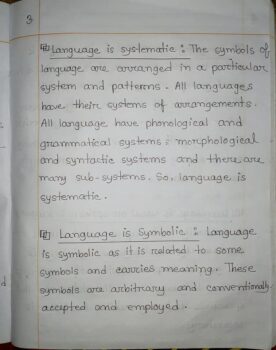 3
Language is systematic : The symbols of
language are arranged in a particular
system and patterns. All languages
have their systems of arrangements.
All language have phonological and
grammatical systems : morphological
and syntactic systems and there are
many sub-systems. So, language is
systematic.
Language is Symbolic : Language
is symbolic as it is related to some
symbols and carries meaning. These
symbols are arbitrary and conventionally
accepted and employed.